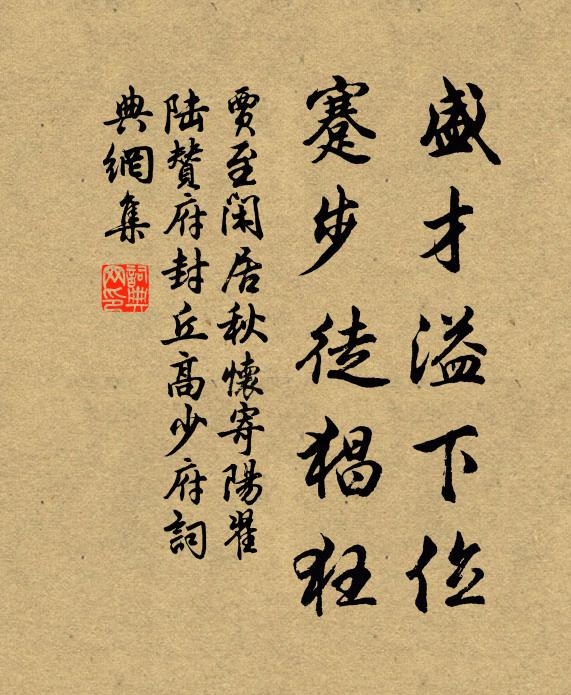 盛才溢下位
蹇步徒猖狂
賈至閑居秋懷寄陽翟
陸贊府封丘高少府詞
典網集
詞典網印